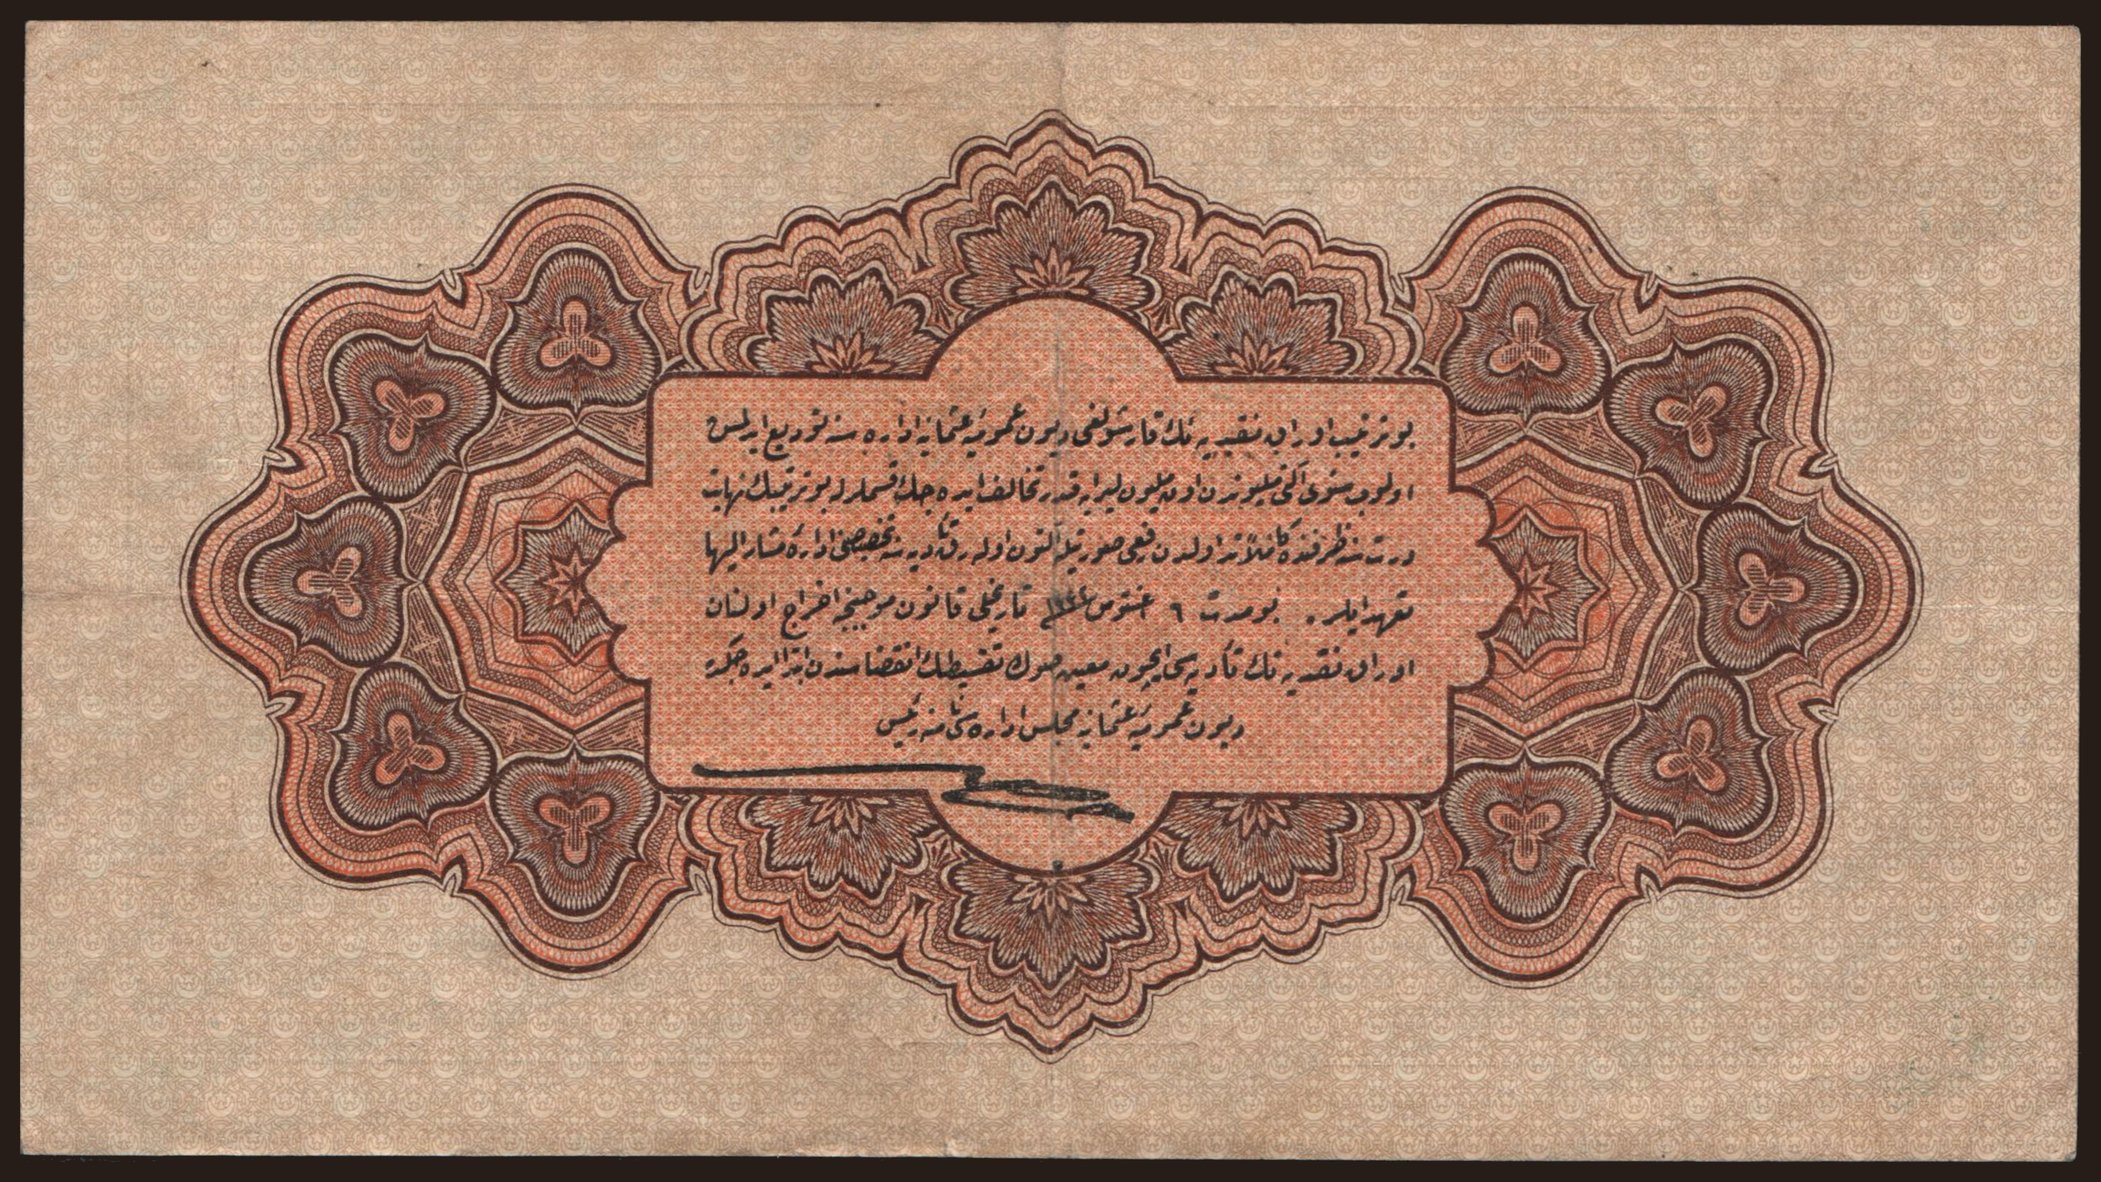 بو ترتیب اوراق نقدیه نك قارشولغی دیون عمومیۀ عثمانیه اداره سنه تودیع ایدلمش
اولوب سنوی ایکی ملیوندن اون ملیون لیرایه قدر تخالف ایده جك قسملرله بو ترتیبك نهایت
درت سنه ظرفنده کاملاً تداولدن رفعی صورتیله آلتون اوله رق تأدیه سنه تخصیصنی ادارۀ مشار الیها
تعهد ایلر. بو مدت ٦ اغستوس تاریخلی قانون موجبنجه اخراج اولنان
اوراق نقدیه نك تأدیه سی ایچون معین صوك تقسیطك انقضاسندن ابتدا ایده جکدر
دیون عمومیۀ عثمانیه مجلس اداره سی رئیسی